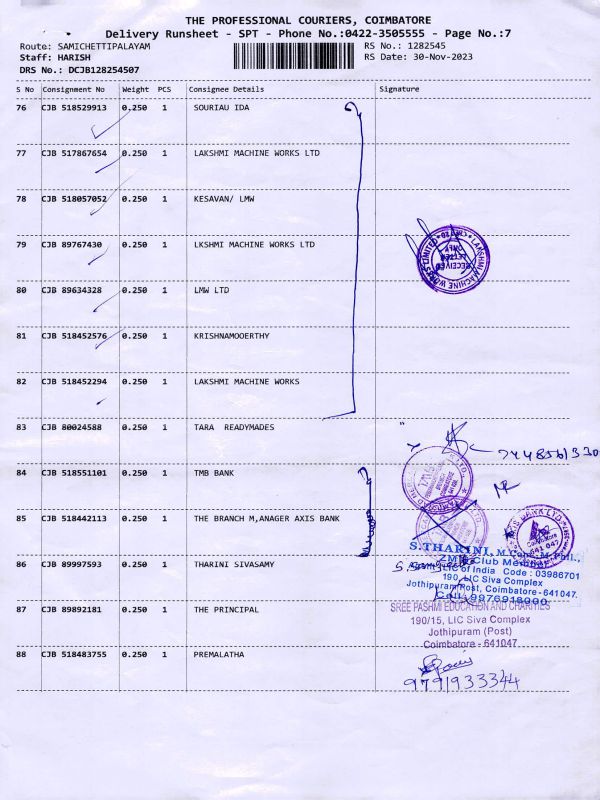 THE PROFESSIONAL COURIERS, COIMBATORE
Delivery Runsheet - SPT - Phone No.:0422-3505555 - Page No.:7
Route: SAMICHETTIPALAYAM RS No.: 1282545
Staff: HARISH RS Date: 30-Nov-2023
DRS No.: DCJB128254507
S No Consignment No Weight PCS Consignee Details Signature
76 CJB 518529913 0.250 1 SOURIAU IDA
77 CJB 517867654 0.250 1 LAKSHMI MACHINE WORKS LTD
78 CJB 518057052 0.250 1 KESAVAN/ LMW
79 CJB 89767430 0.250 1 LKSHMI MACHINE WORKS LTD
LAKSHMI MACHINE WORKS LIMITED
RECEIVED
LETTER
ONLY
80 CJB 89634328 0.250 1 LMW LTD
81 CJB 518452576 0.250 1 KRISHNAMOOERTHY
82 CJB 518452294 0.250 1 LAKSHMI MACHINE WORKS
83 CJB 80024588 0.250 1 TARA READYMADES
84 CJB 518551101 0.250 1 TMB BANK
85 CJB 518442113 0.250 1 THE BRANCH M,ANAGER AXIS BANK
AXIS BANK LTD.
Coimbatore
641 047
86 CJB 89997593 0.250 1 THARINI SIVASAMY
S.THARINI, M.Com., M.Phil.,
ZM's Club Member
LIC of India Code : 03986701
190, LIC Siva Complex
Jothipuram Post, Coimbatore-641047.
Cell: 9976918000
87 CJB 89892181 0.250 1 THE PRINCIPAL
SREE PASHMI EDUCATION AND CHARITIES
190/15, LIC Siva Complex
Jothipuram (Post)
Coimbatore - 641047
88 CJB 518483755 0.250 1 PREMALATHA
9791933344